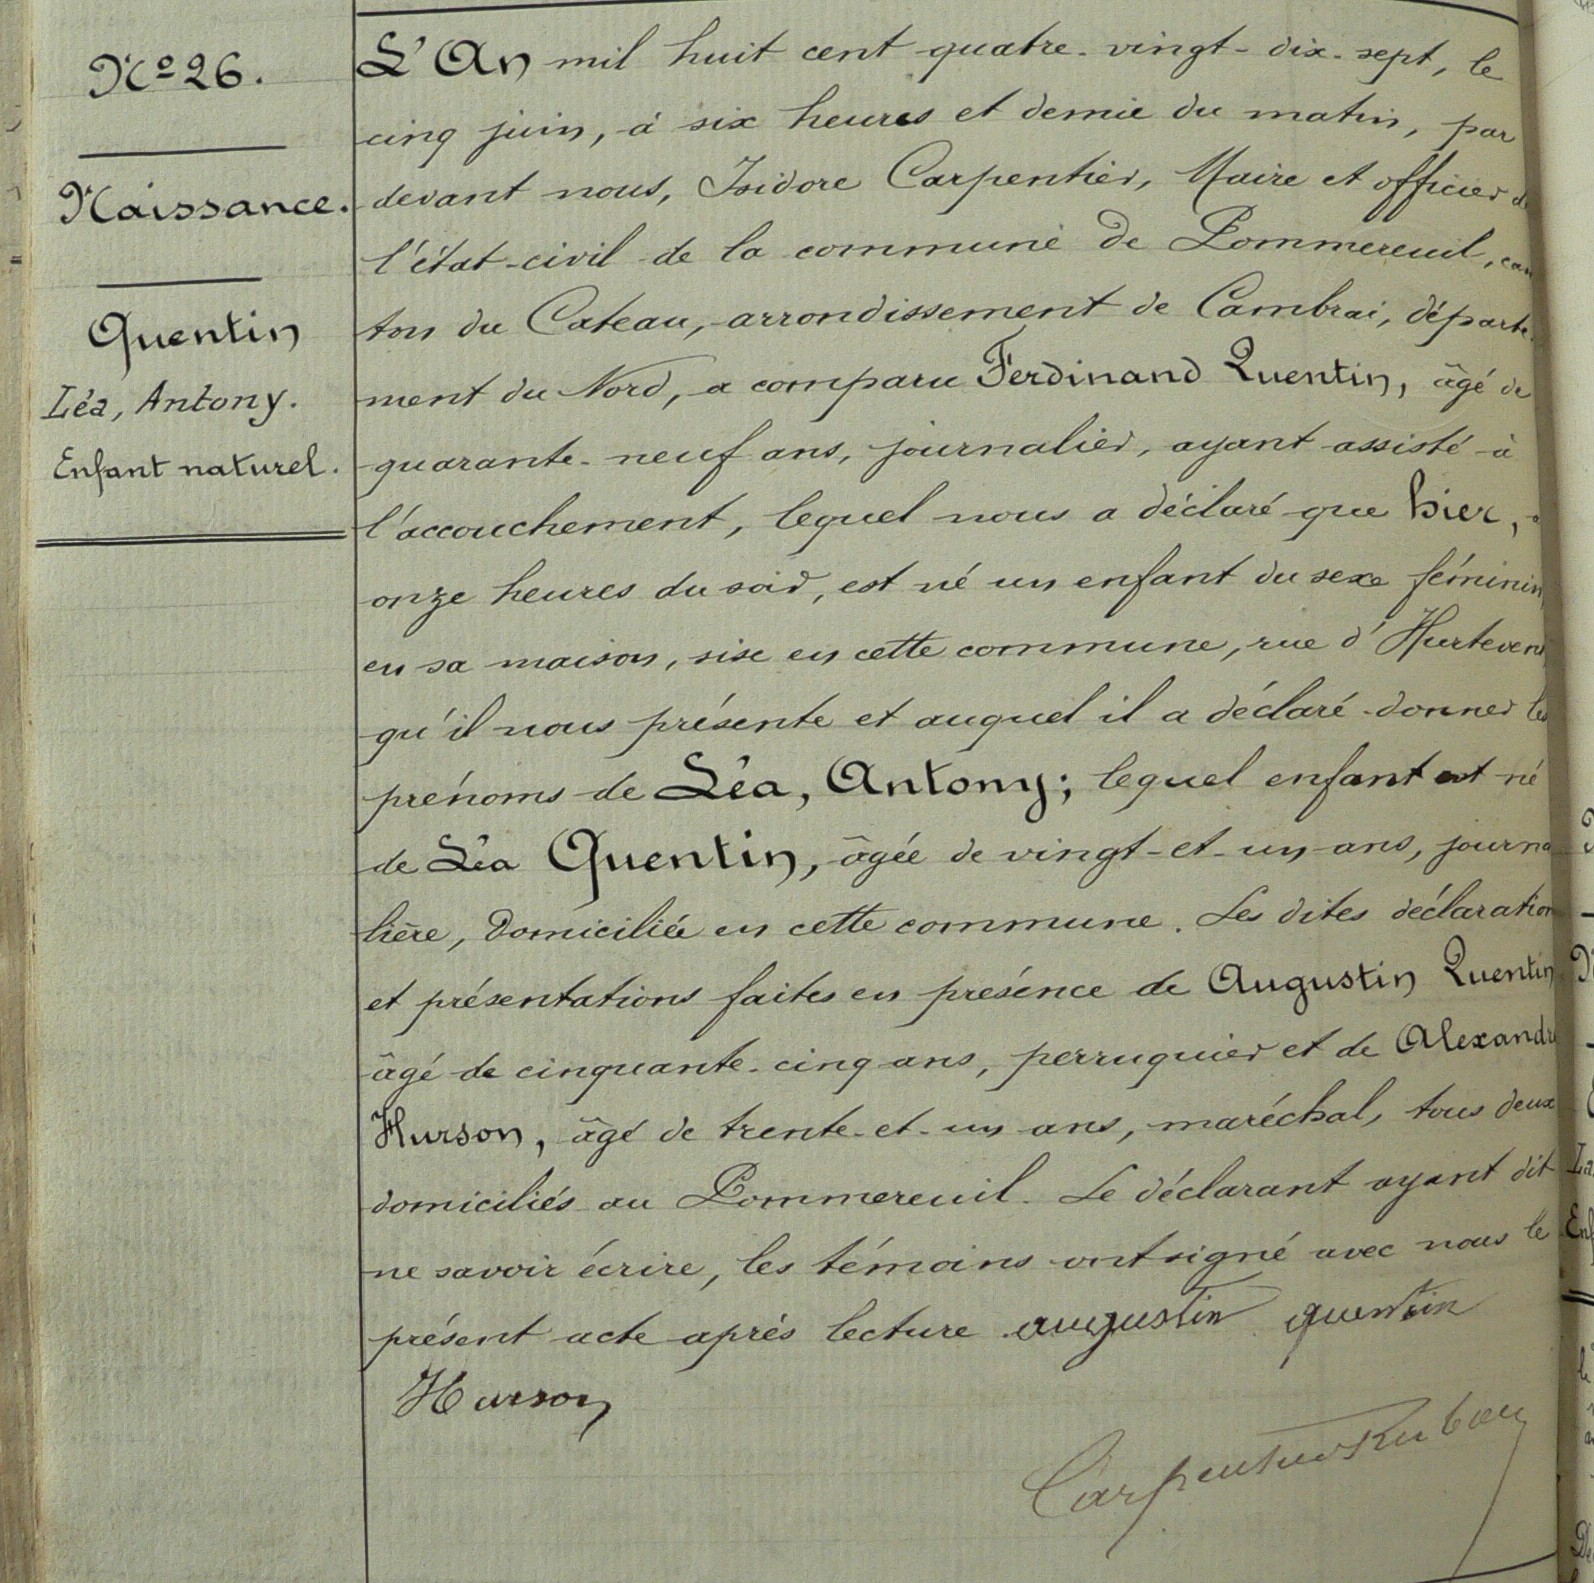 Nº 26.
Naissance.
Quentin
Léa, Antony.
Enfant naturel.
L'An mil huit cent quatre-vingt-dix-sept, le
cinq juin, à six heures et demie du matin, par
devant nous, Isidore Carpentier, Maire et officier de
l'état-civil de la commune de Pommereuil, can
ton du Cateau, arrondissement de Cambrai, départe-
ment du Nord, a comparu Ferdinand Quentin, âgé de
quarante-neuf ans, journalier, ayant assisté à
l'accouchement, lequel nous a déclaré que hier, à
onze heures du soir, est né un enfant du sexe féminin
en sa maison, sise en cette commune, rue d'Hurtevent
qu'il nous présente et auquel il a déclaré donner les
prénoms de Léa, Antony; lequel enfant est né
de Léa Quentin, âgée de vingt-et-un ans, journa
lière, domiciliée en cette commune. Les dites déclaration
et présentations faites en présence de Augustin Quentin
âgé de cinquante-cinq ans, perruquier et de Alexandre
Hurson, âgé de trente-et-un ans, maréchal, tous deux
domiciliés au Pommereuil. Le déclarant ayant dit
ne savoir écrire, les témoins ont signé avec nous le
présent acte après lecture augustin quentin
Hurson
Carpentier